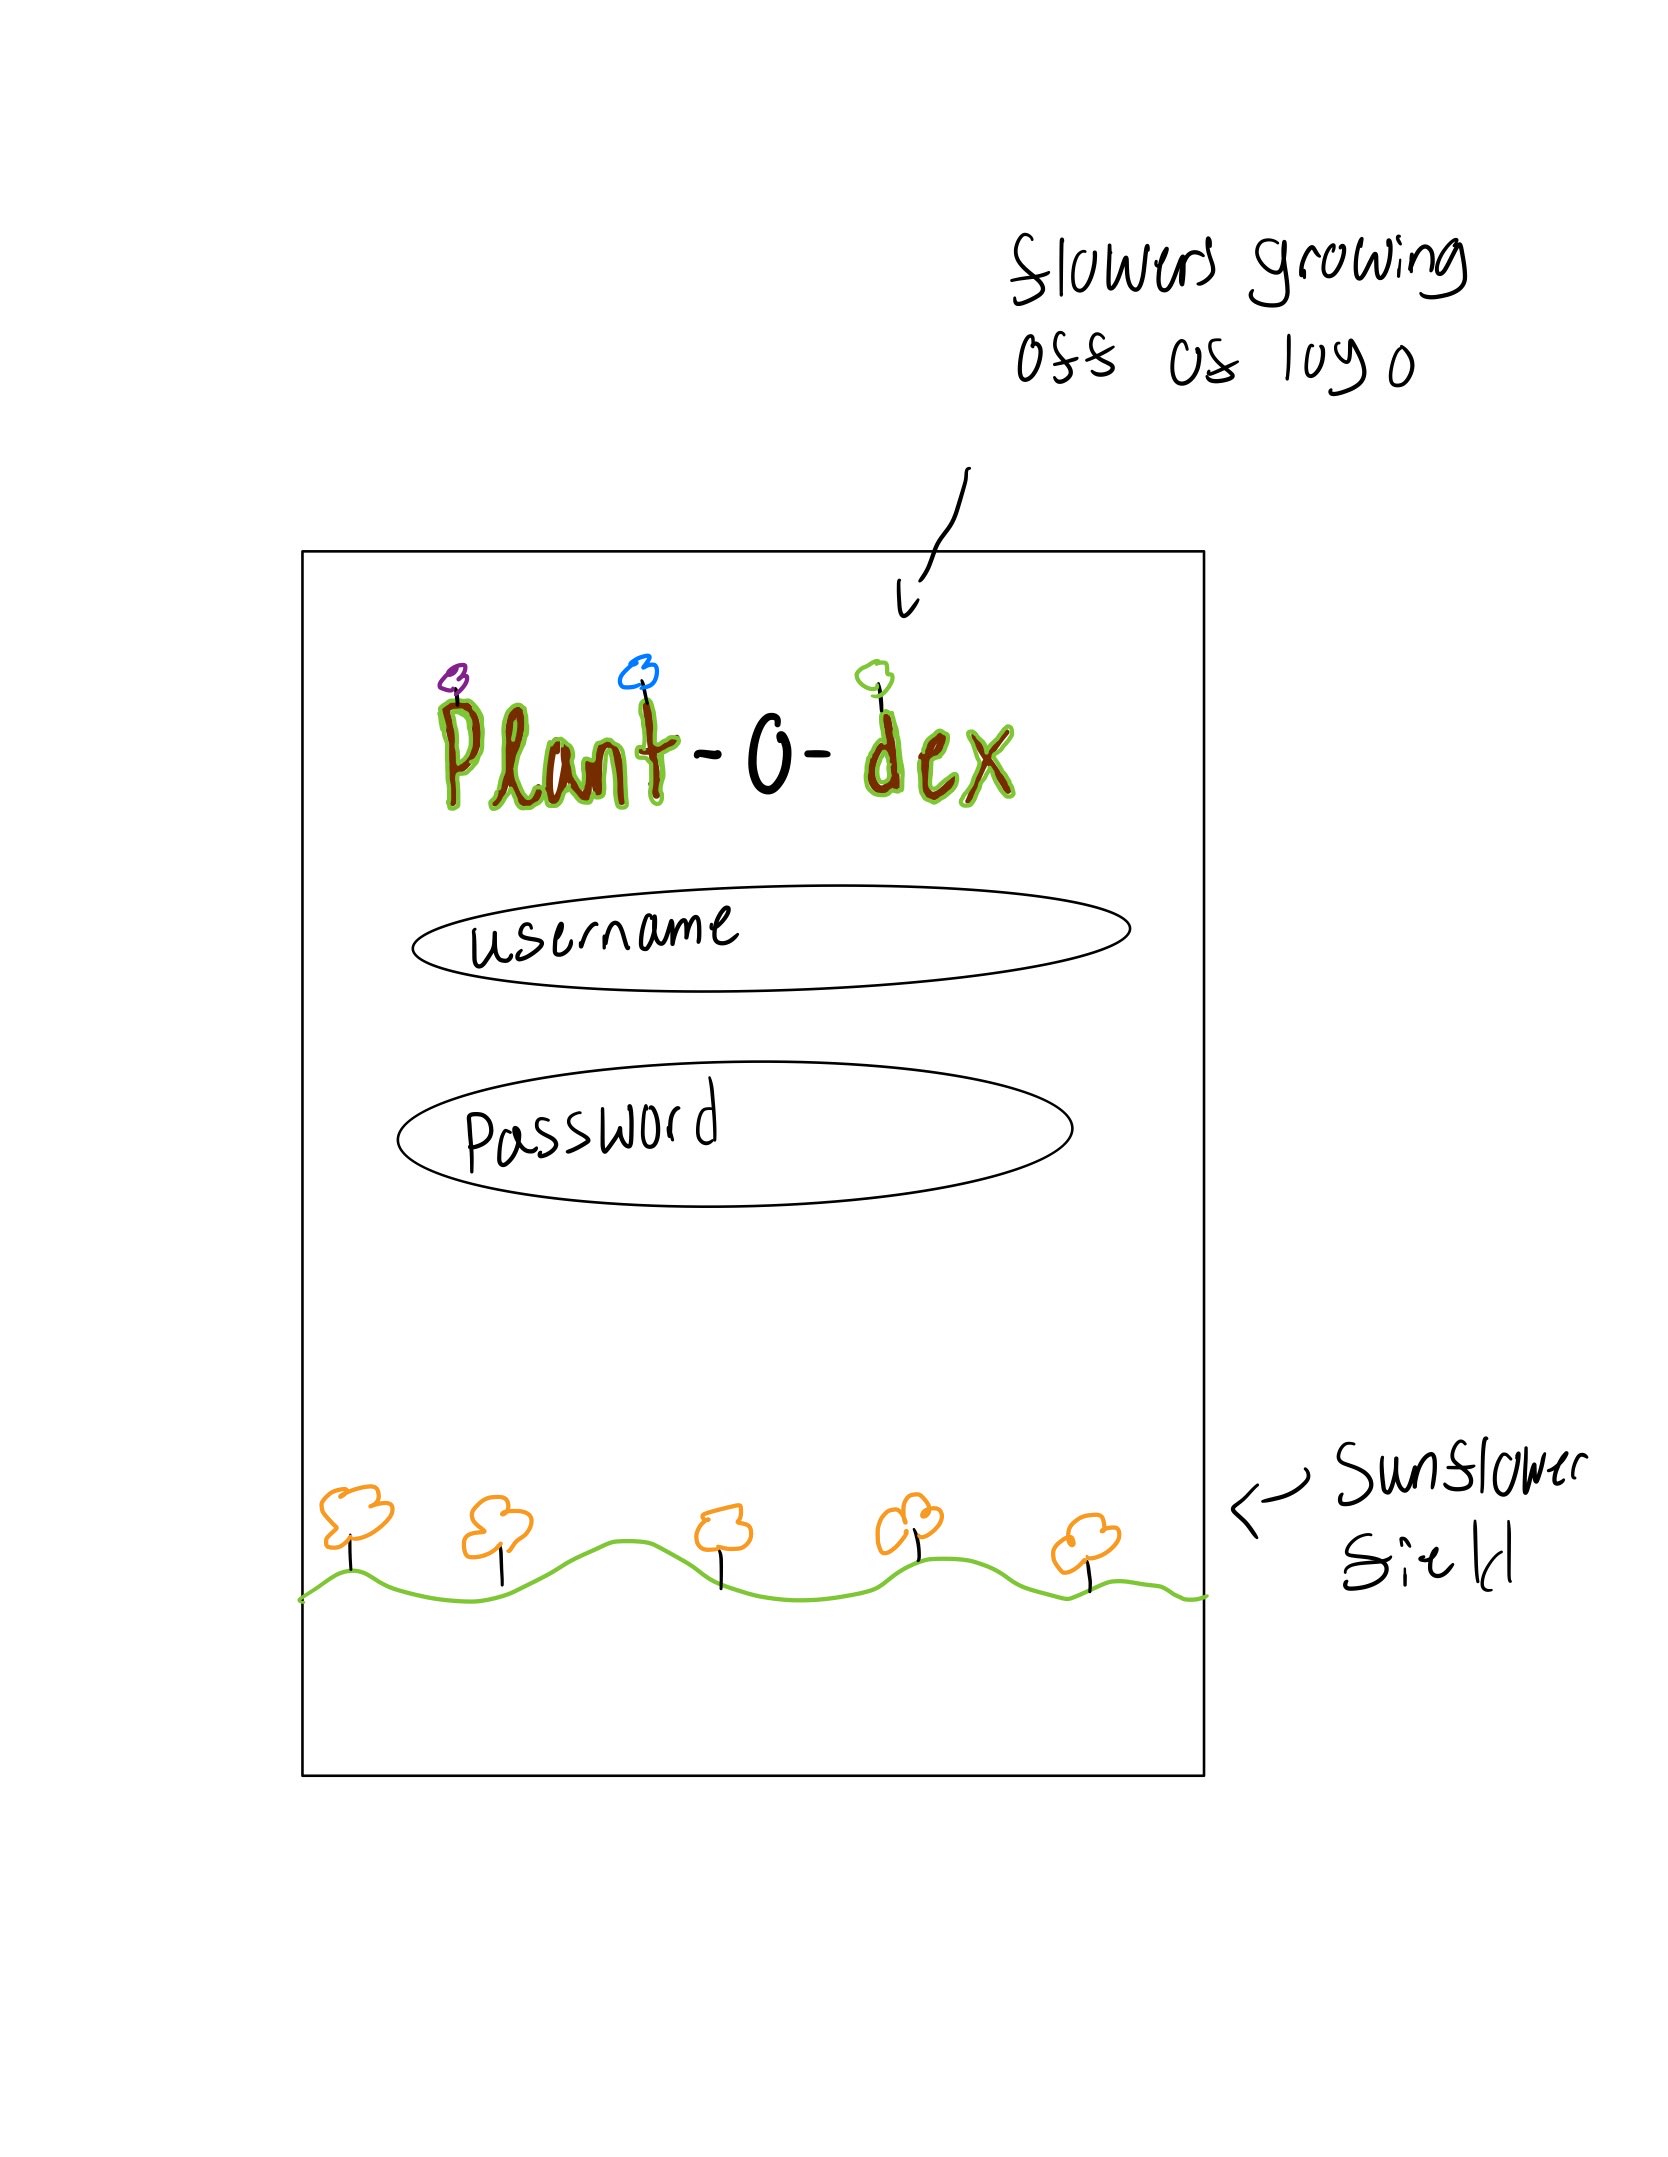 flowers growing
off of logo
Plant-o-dex
username
Password
Sunflower
field